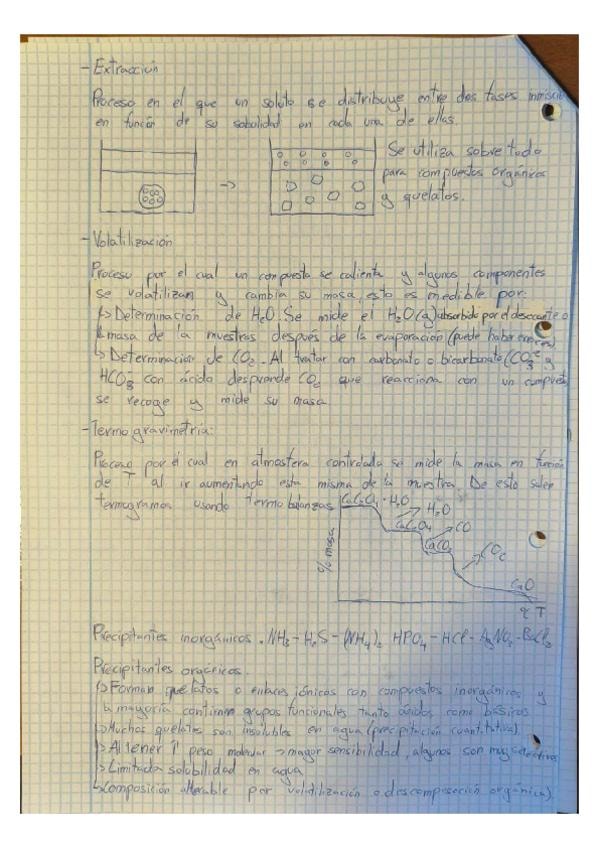 - Extracción
Proceso en el que un soluto se distribuye entre dos fases inmiscib
en función de su solubilidad en cada una de ellas.
Se utiliza sobre todo
para compuestos orgánicos
y quelatos.
- Volatilización
Proceso por el cual un compuesto se calienta y algunos componentes
se volatilizan y cambia su masa, esto es medible por:
↳ Determinación de H₂O. Se mide el H₂O(g) absorbido por el desecante o
la masa de la muestras después de la evaporación (puede haber errores)
↳ Determinación de CO₂. Al tratar con carbonato o bicarbonato (CO₃²⁻ y
HCO₃⁻ con ácido desprende CO₂ que reacciona con un compuesto,
se recoge y mide su masa.
- Termogravimetría:
Proceso por el cual en atmosfera controlada se mide la masa en función
de T al ir aumentando esta misma de la muestra. De esto salen
termogramas usando termobalanzas
CaC₂O₄ · H₂O
H₂O
CaC₂O₄
CO
CaCO₃
CO₂
CaO
% masa
T
Precipitantes inorgánicos. NH₃ - H₂S - (NH₄)₂ HPO₄ - HCl - AgNO₃ - BaCl₂
Precipitantes orgánicos.
↳ Forman quelatos o enlaces iónicos con compuestos inorgánicos y
la mayoría contienen grupos funcionales tanto ácidos como básicos
↳ Muchos quelatos son insolubles en agua (precipitación cuantitativa)
↳ Al tener ↑ peso molecular → mayor sensibilidad, algunos son muy selectivos
↳ Limitada solubilidad en agua
↳ Composición alterable por volatilización o descomposición orgánica).